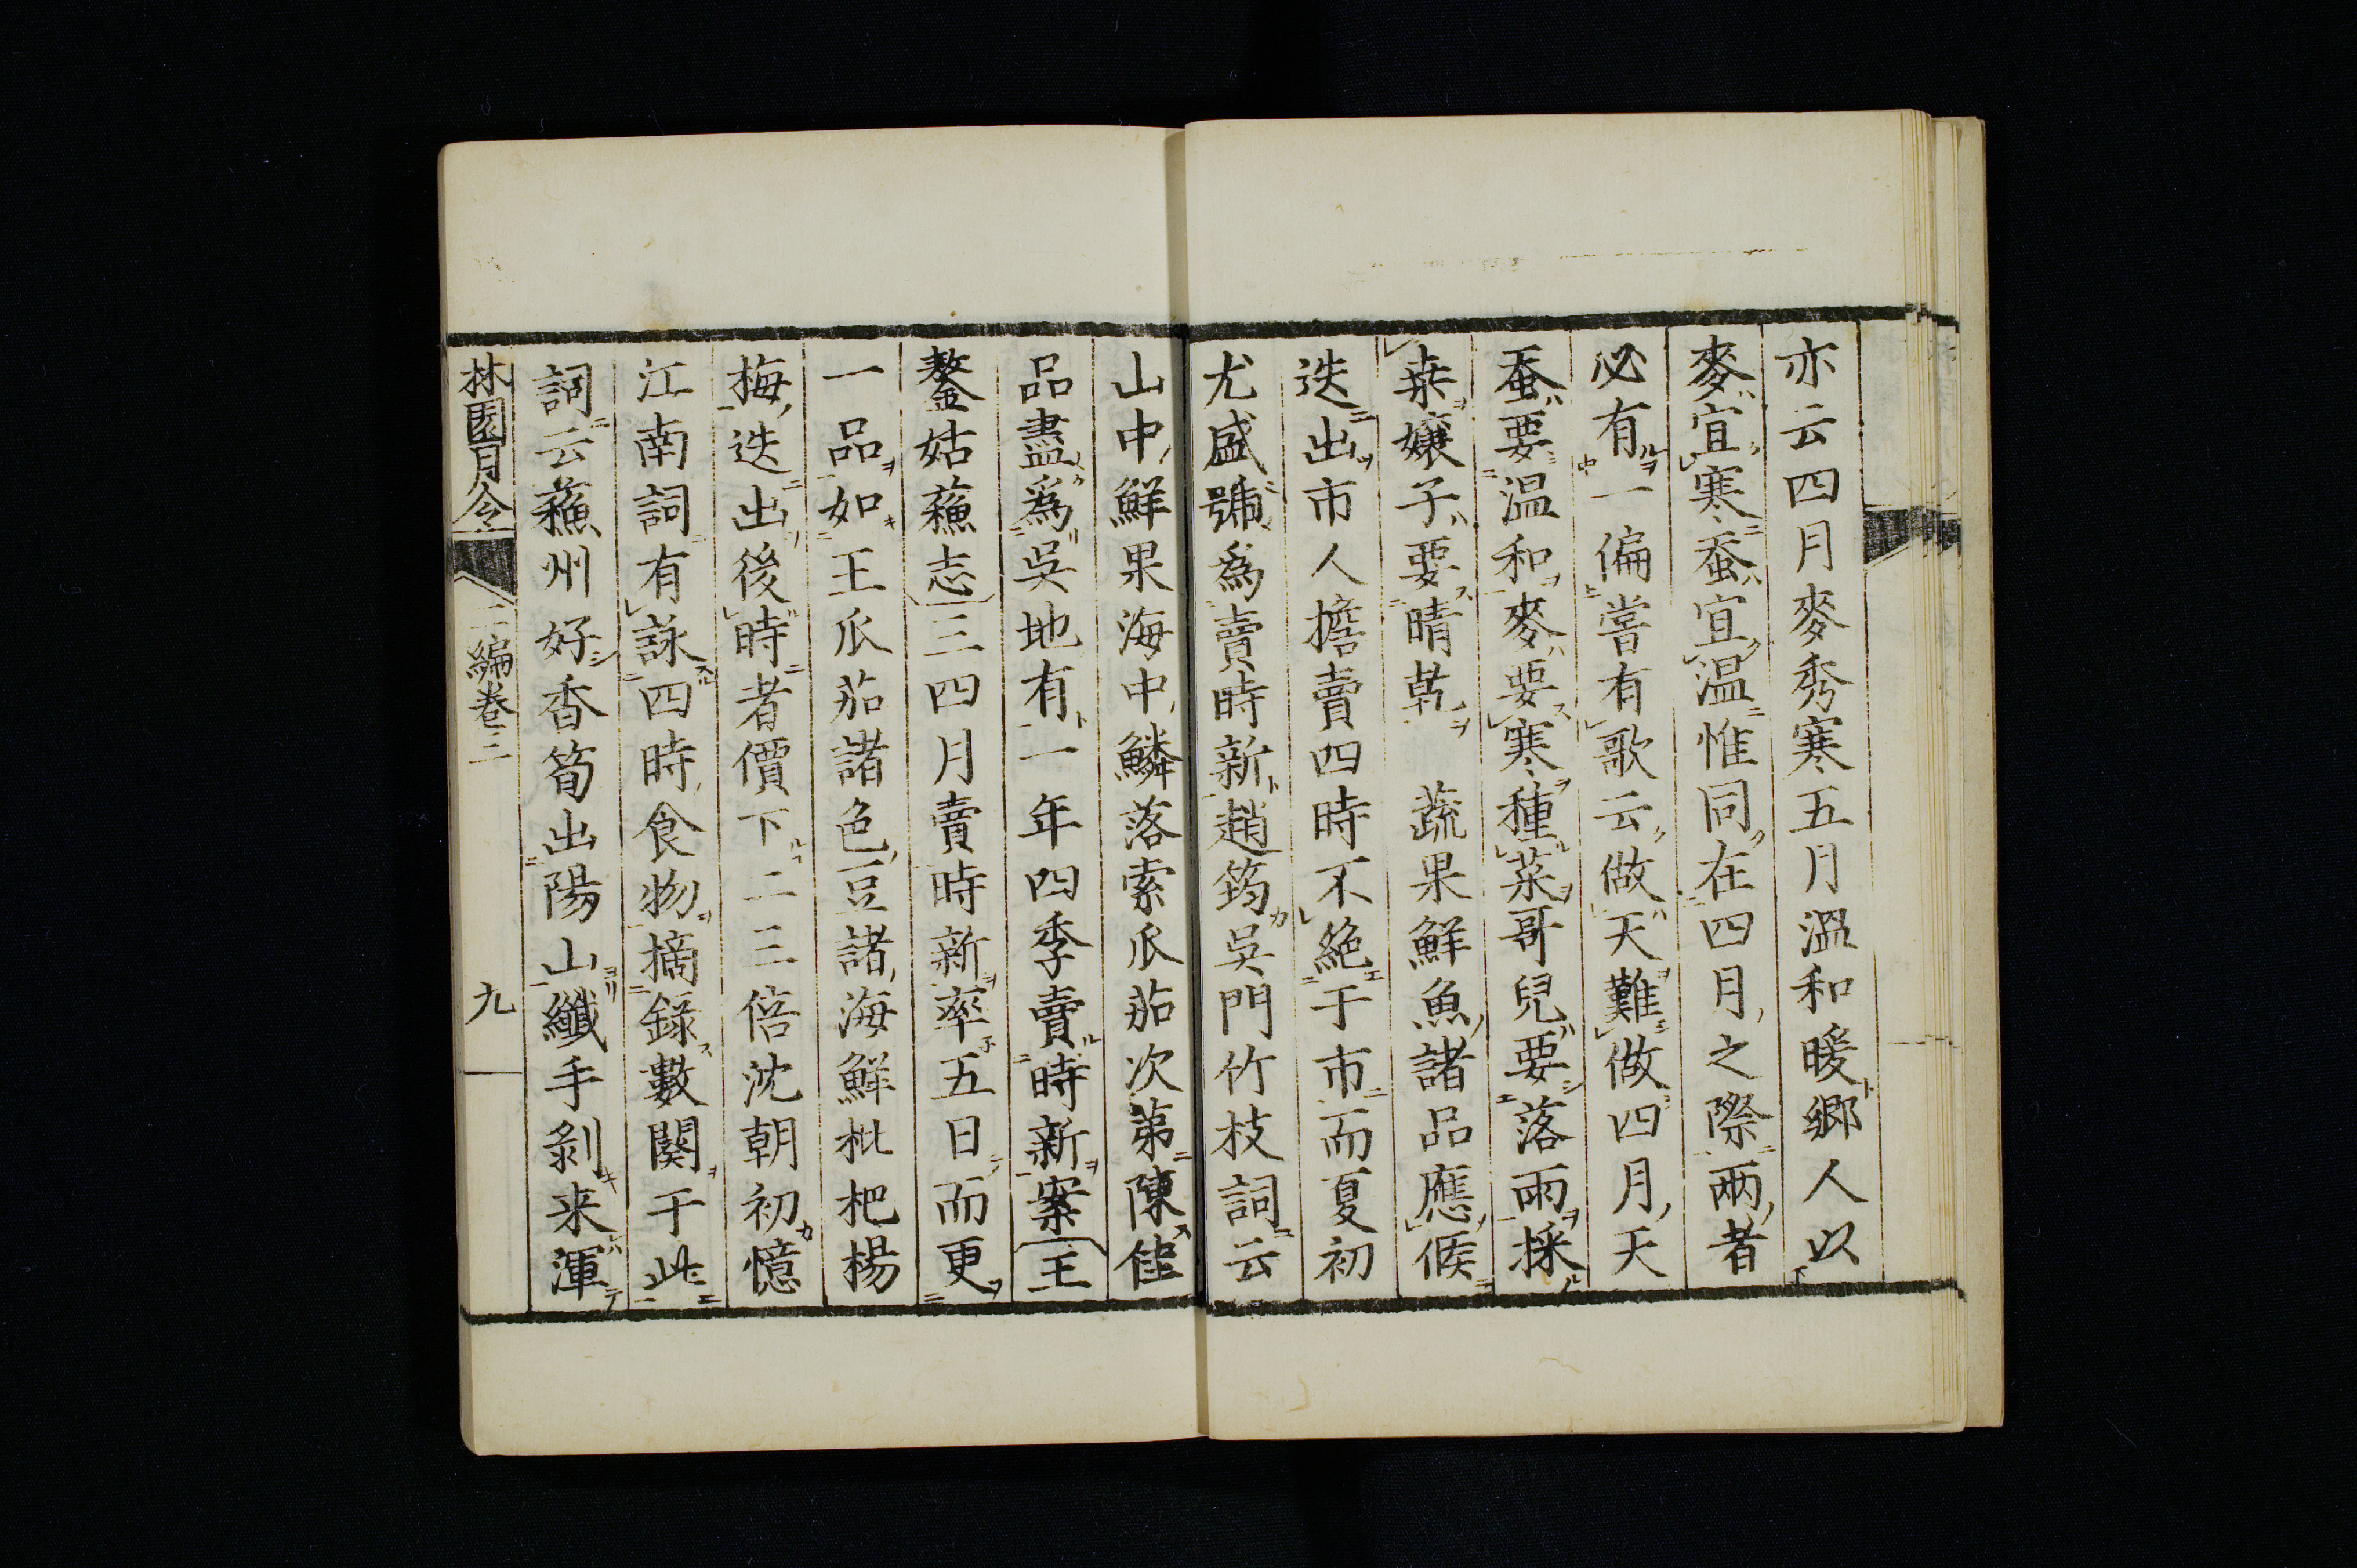 亦云四月麥秀寒五月溫和暖郷人以
麥宜寒蚕宜温惟同在四月之際兩者
必有一偏嘗有歌云做天難做四月天
蚕要温和麥要寒種菜哥兒要落雨採
桒孃子要晴乾　蔬果鮮魚諸品應候
迭出市人擔賣四時不絶于市而夏初
尤盛號爲賣時新趙筠吳門竹枝詞云
山中鮮果海中鱗落索瓜茄次第陳佳
品盡爲吳地有一年四季賣時新案王
鏊姑蘓志三四月賣時新率五日而更
一品如王瓜茄諸色豆諸海鮮枇杷楊
梅迭出後時者價下二三倍沈朝初憶
江南詞有詠四時食物摘録數闋于此
詞云蘓州好香筍出陽山纖手剝来渾
林園月令　二編卷二　九